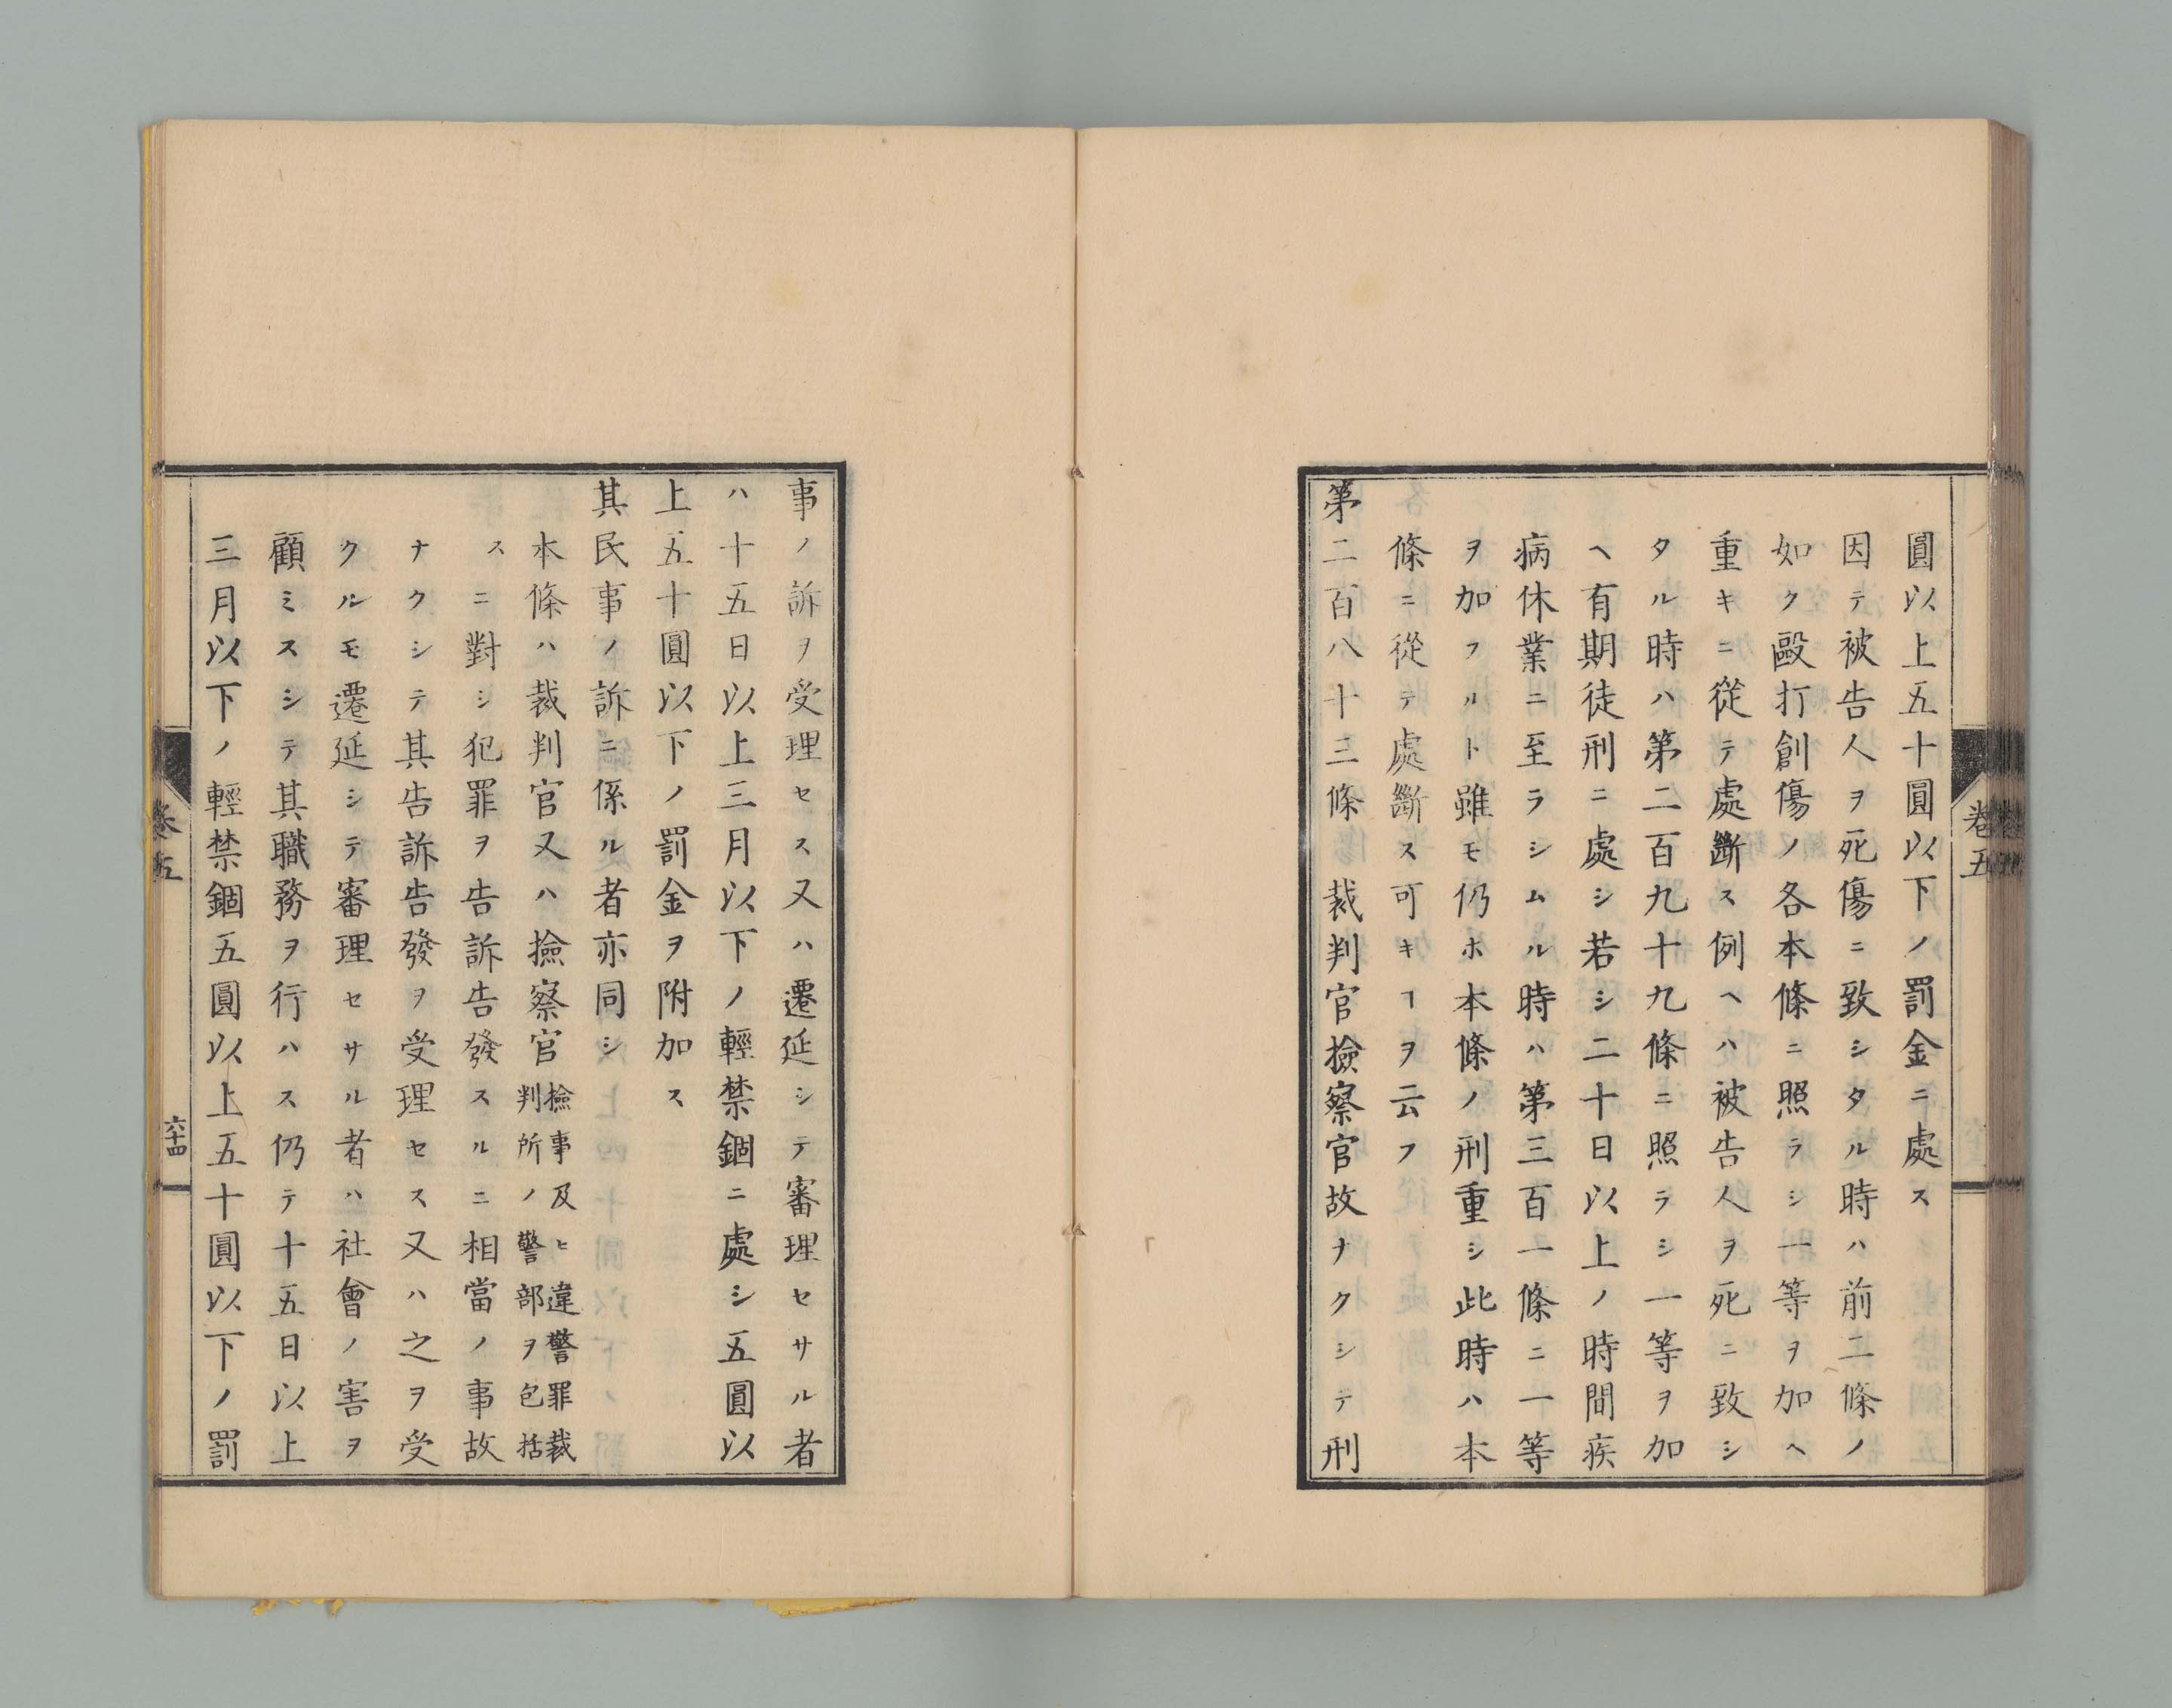 圓以上五十圓以下ノ罰金ニ處ス
因テ被告人ヲ死傷ニ致シタル時ハ前二條ノ
如ク毆打創傷ノ各本條ニ照ラシ一等ヲ加ヘ
重キニ從テ處斷ス例ヘハ被告人ヲ死ニ致シ
タル時ハ第二百九十九條ニ照ラシ一等ヲ加
ヘ有期徒刑ニ處シ若シ二十日以上ノ時間疾
病休業ニ至ラシムル時ハ第三百一條ニ一等
ヲ加フルト雖モ仍ホ本條ノ刑重シ此時ハ本
條ニ從テ處斷ス可キヿヲ云フ
第二百八十三條 裁判官撿察官故ナクシテ刑
卷五
事ノ訴ヲ受理セス又ハ遷延シテ審理セサル者
ハ十五日以上三月以下ノ輕禁錮ニ處シ五圓以
上五十圓以下ノ罰金ヲ附加ス
其民事ノ訴ニ係ル者亦同シ
本條ハ裁判官又ハ撿察官撿事及ヒ違警罪裁
判所ノ警部ヲ包括
スニ對シ犯罪ヲ告訴告發スルニ相當ノ事故
ナクシテ其告訴告發ヲ受理セス又ハ之ヲ受
クルモ遷延シテ審理セサル者ハ社會ノ害ヲ
顧ミスシテ其職務ヲ行ハス仍テ十五日以上
三月以下ノ輕禁錮五圓以上五十圓以下ノ罰
卷五
六十四